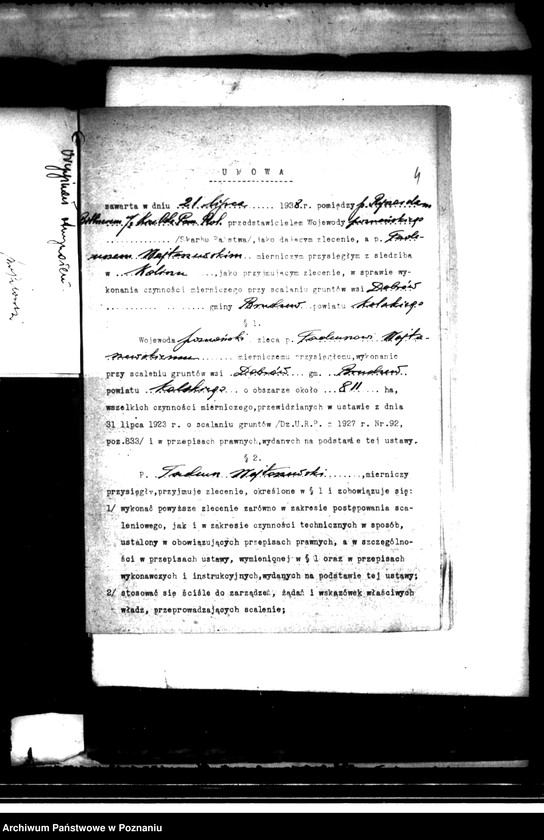 4
U M O W A
zawarta w dniu 21 lipca 1938.r. pomiędzy p. Ryszardem
przedstawicielem Wojewody poznańskiego
/Skarbu Państwa/, jako dającym zlecenie, a p. Tade-
uszem Wojtaszewskim mierniczym przysięgłym z siedzibą
w Kaliszu, jako przyjmującym zlecenie, w sprawie wy-
konania czynności mierniczego przy scalaniu gruntów wsi Dobrów
gminy Brudzew powiatu kolskiego
§ 1.
Wojewoda poznański zleca p. Tadeuszowi Wojta-
szewskiemu mierniczemu przysięgłemu, wykonanie
przy scaleniu gruntów wsi Dobrów gm. Brudzew
powiatu kolskiego o obszarze około 811 ha,
wszelkich czynności mierniczego, przewidzianych w ustawie z dnia
31 lipca 1923 r. o scalaniu gruntów /Dz.U.R.P. z 1927 r. Nr.92,
poz.833/ i w przepisach prawnych, wydanych na podstawie tej ustawy.
§ 2.
P. Tadeusz Wojtaszewski, mierniczy
przysięgły, przyjmuje zlecenie, określone w § 1 i zobowiązuje się:
1/ wykonać powyższe zlecenie zarówno w zakresie postępowania sca-
leniowego, jak i w zakresie czynności technicznych w sposób,
ustalony w obowiązujących przepisach prawnych, a w szczególno-
ści w przepisach ustawy, wymienionej w § 1 oraz w przepisach
wykonawczych i instrukcyjnych, wydanych na podstawie tej ustawy;
2/ stosować się ściśle do zarządzeń, żądań i wskazówek właściwych
władz, przeprowadzających scalenie;
Archiwum Państwowe w Poznaniu